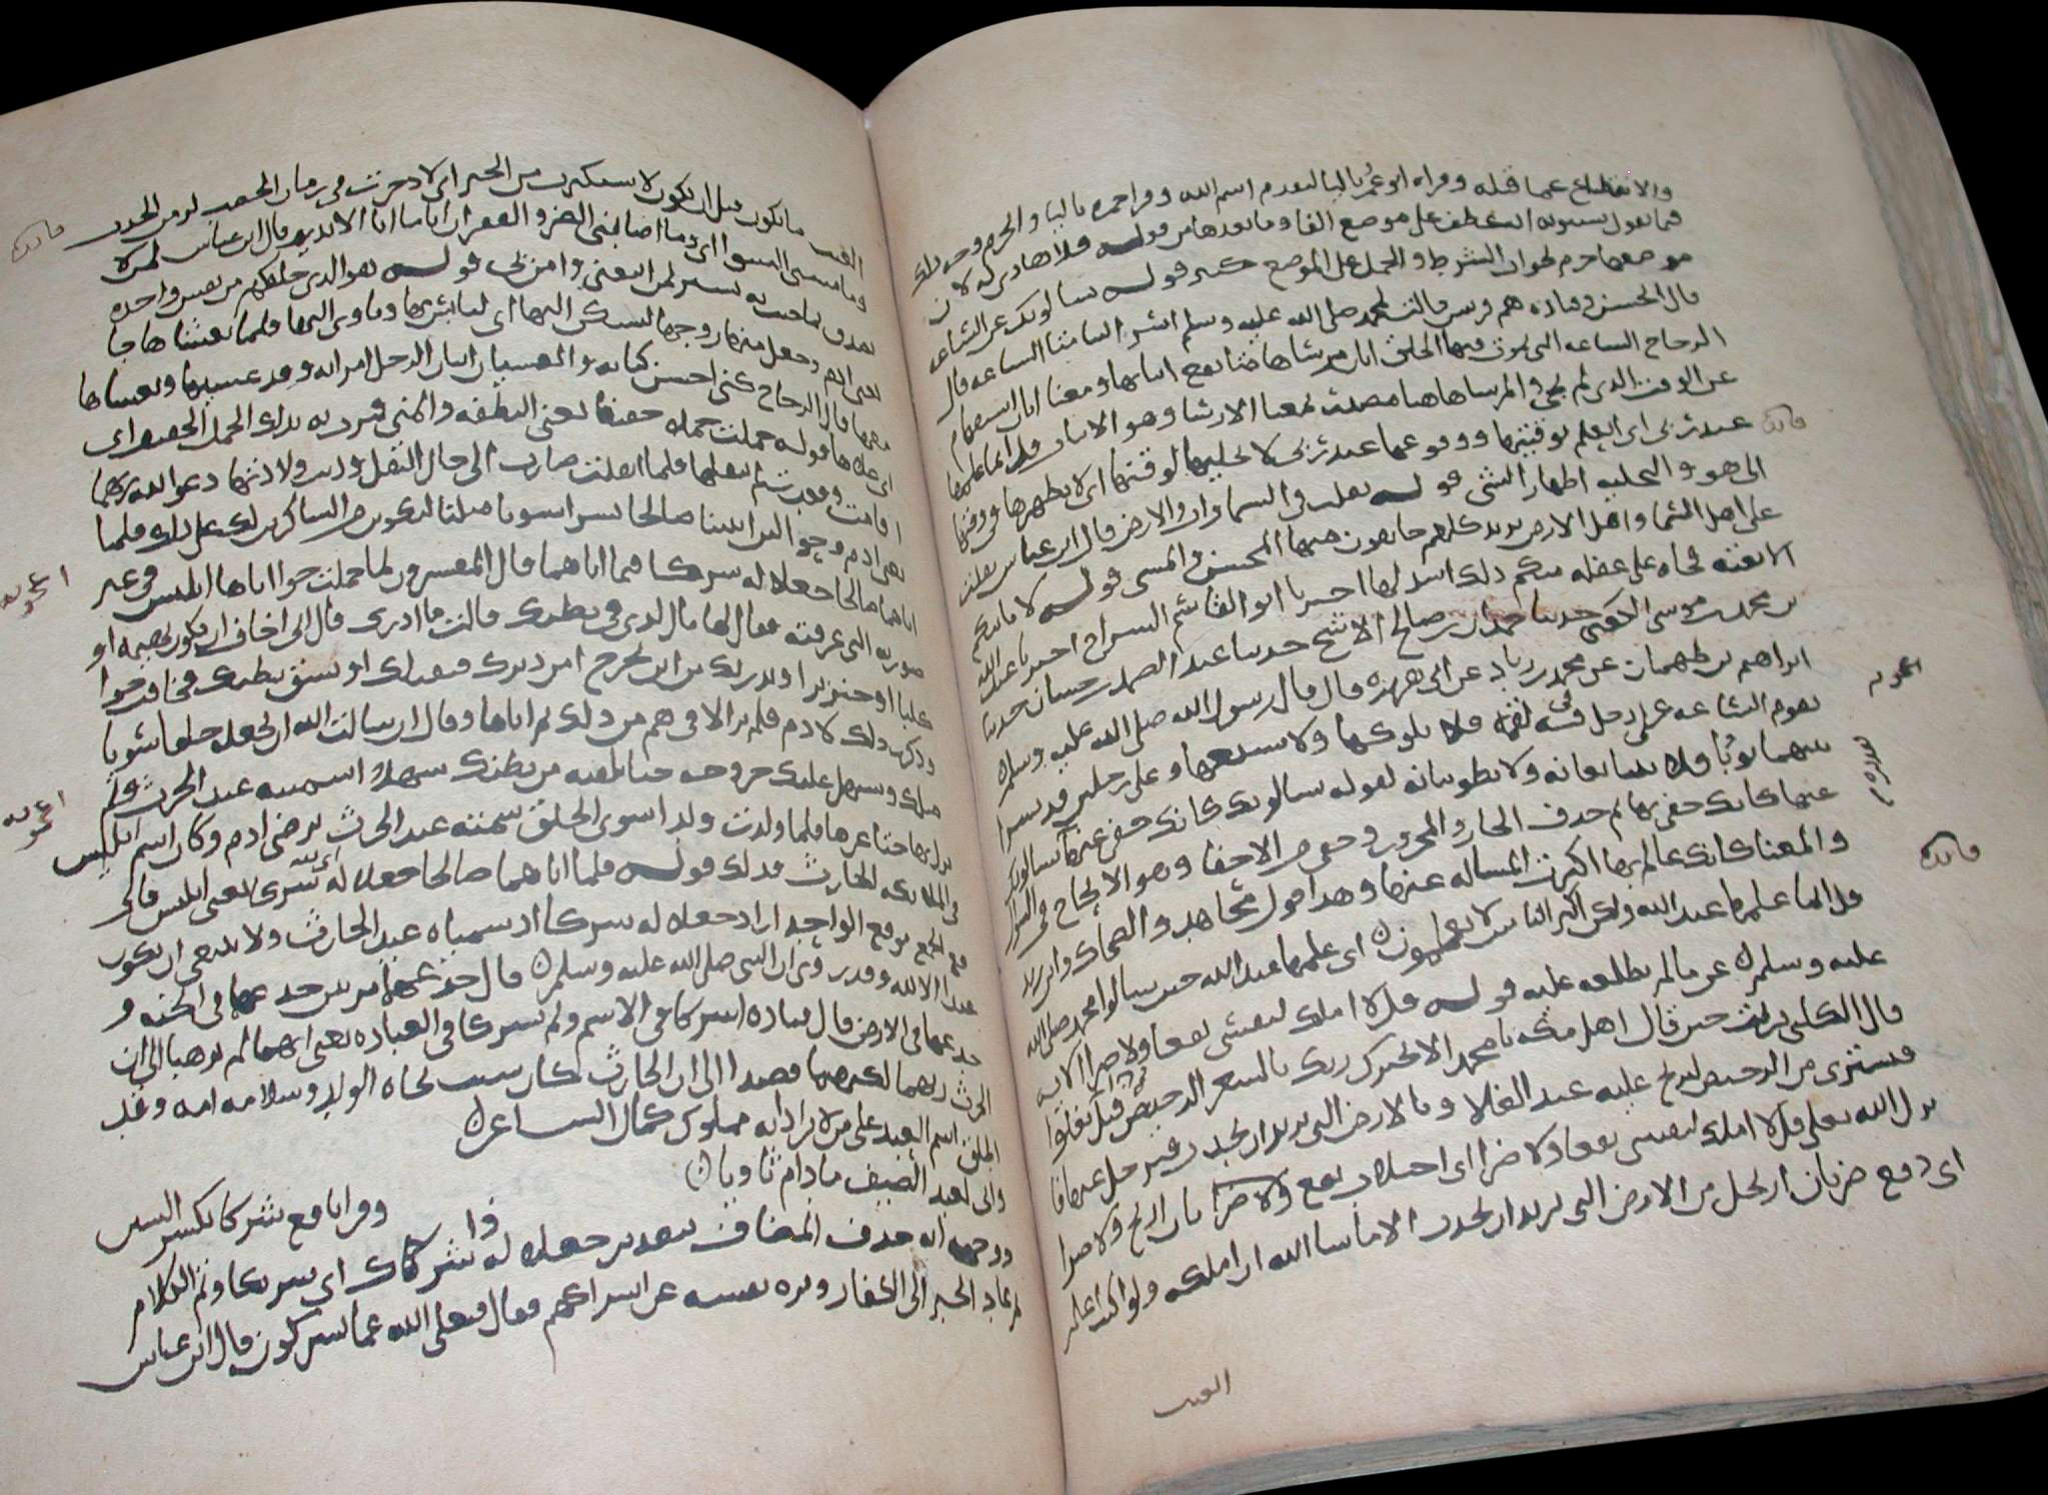 والانقطاع عما قبله وقراه ابو عمر باليا لتقدم اسم الله وقرا حمزه باليا والجزم ووجه ذلك
فيما يقول سيبويه انه عطف على موضع الفا وما بعدها من قوله فلا هادى له لان
موضعها جزم لجواب الشرط والحمل على الموضع كثير قوله يسالونك عن الساعه
قال الحسن وقتاده هم قريش قالت لمحمد صلى الله عليه وسلم اسر الينا متى الساعه قال
الزجاج الساعه التى يموت فيها الخلق ايان مرساها متى يقع اثباتها ومعنا ايان استفهام
عن الوقت الذى لم يجى والمرسا هاهنا مصدر بمعنا الارسا وهو الاثبات قل انما علمها
عند ربى اى العلم بوقتها ووقوعها عند ربى لا يجليها لوقتها اى لا يظهرها فى وقتها
الا هو والتجليه اظهار الشى قوله ثقلت فى السماوات والارض قال ابن عباس ثقلت
على اهل السما واهل الارض يريد كلهم خايفون منها المحسن والمسى قوله لا تاتيكم
الا بغته فجاه على غفله منكم ذلك اشد لها اخبرنا ابو القاسم السراج اخبرنا عبد الله
بن محمد بن موسى الكعبى حدثنا حمدان بن صالح الاشج حدثنا عبد الصمد بن حسان حدثنا
ابراهيم بن طهمان عن محمد بن زياد عن ابى هريره قال قال رسول الله صلى الله عليه وسلم
تقوم الساعه على رجل فى فيه لقمه فلا يلوكها ولا يسيغها وعلى رجلين قد نشرا
بينهما ثوبا فلا يتبايعانه ولا يطويانه قوله يسالونك كانك حفى عنها يسالونك
عنها كانك حفى بها ثم حذف الجار والمجرور وحفى من الاحفا وهو الالحاح فى السوال
والمعنا كانك عالم بها اكثرت المساله عنها وهذا قول مجاهد والضحاك وابن زيد
قل انما علمها عند الله ولكن اكثر الناس لا يعلمون اى علمها عند الله حين سالوا محمد صلى الله
عليه وسلم عن ما لم يطلعه عليه قوله قل لا املك لنفسى نفعا ولا ضرا الايه
قال الكلبى نزلت حين قال اهل مكه يا محمد الا يخبرك ربك بالسعر الرخيص قبل ان يغلوا
فتشترى من الرخيص لتربح عليه عند الغلا وبالارض التى تريد ان تجدب فترحل عنها فا
نزل الله تعلى قل لا املك لنفسى نفعا ولا ضرا اى اجتلاب نفع بان اربح ولا ضرا
اى دفع ضر بان ارتحل من الارض التى تريد ان تجدب الا ما شا الله ان املكه ولو كنت اعلم
الغيب
فايده
فايده
الغيب ما يكون قبل ان يكون لاستكثرت من الخير اى لادخرت فى زمان الخصب لزمن الجدب
وما مسنى السوا اى وما اصابنى الضر والفقر ان انا ما انا الا نذير قال ابن عباس لمن لا
يصدق بما جيت به وبشير لمن اتبعنى وامن بى قوله هو الذى خلقكم من نفس واحده
يعنى ادم وجعل منها زوجها ليسكن اليها اى ليانس بها وياوى اليها فلما تغشاها جا
معها قال الزجاج كنى احسن كنايه والغشيان اتيان الرجل امراته وقد غشيها وتغشاها
اى علاها قوله حملت حملا خفيفا يعنى النطفه والمنى فمرت به بذلك الحمل الخفيف اى
اقامت وقعدت لم يثقلها فلما اثقلت صارت الى حال الثقل ودنت ولادتها دعوا الله ربهما
يعنى ادم وحوا لين اتيتنا صالحا بشرا سويا مثلنا لنكونن من الشاكرين لك على ذلك فلما
اتاهما صالحا جعلا له شركا فيما اتاهما قال المفسرون لما حملت حوا اتاها ابليس فى غير
صورته التى عرفته فقال لها ما الذى فى بطنك قالت ما ادرى قال انى اخاف ان يكون بهيمه او
كلبا او خنزيرا وما يدريك من اين يخرج امن دبرك فيقتلك او ينشق بطنك فخافت حوا
وذكرت ذلك لادم فلم يزالا فى هم من ذلك ثم اتاها وقال ان سالت الله ان يجعله خلقا سويا
مثلك ويسهل عليك خروجه حتى تلقيه من بطنك سهلا اتسميه عبد الحرث ولم
يزل بها حتى غرها فلما ولدت ولدا سوى الخلق سمته عبد الحرث برضى ادم وكان اسم ابليس
فى الملايكه الحارث فذلك قوله فلما اتاهما صالحا جعلا له شركا يعنى ابليس فاو
قع الجمع موقع الواحد اراد جعلا له شركا اذ سمياه عبد الحارث ولا ينبغى ان يكون
عبدا الا لله وقد روى ان النبى صلى الله عليه وسلم قال خدعهما مرتين خدعهما فى الجنه و
خدعهما فى الارض قال قتاده اشركا فى الاسم ولم يشركا فى العباده يعنى انهما لم يذهبا الى ان
الحرث ربهما لكنهما قصدا الى ان الحارث كان سبب نجاه الولد وسلامه امه وقد
يطلق اسم العبد على من لا يراد به مملوك كما قال الشاعر
وانى لعبد الضيف ما دام ثاويا
وقرا نافع شركا بكسر الشين
ووجهه انه حذف المضاف بتقدير جعلا له ذا شرك اى شريكا وتم الكلام
ثم عاد الخبر الى الكفار ونزه نفسه عن اشراكهم فقال فتعلى الله عما يشركون قال ابن عباس
فايده